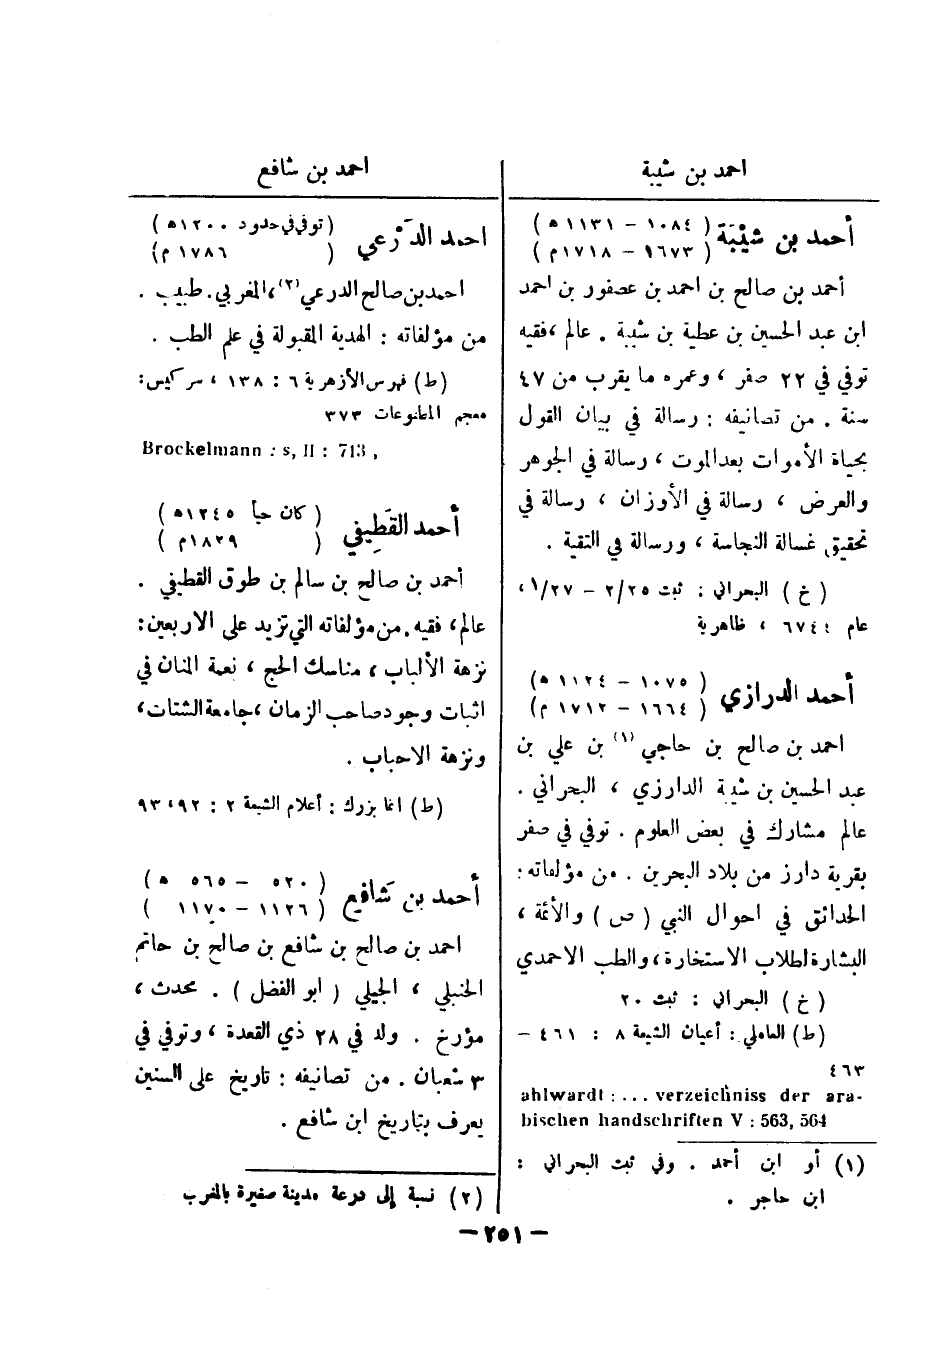 احمد بن شيبة
أحمد بن شَيْبَة ( ١٠٨٤ – ١١٣١ ه )
( ١٦٧٣ – ١٧١٨م )
أحمد بن صالح بن احمد بن عصفور بن احمد
ابن عبد الحسين بن عطية بن شيبة . عالم ، فقيه
توفي في ٢٢ صفر ، وعمره ما يقرب من ٤٧
سنة . من تصانيفه : رسالة في بيان القول
بحياة الأموات بعد الموت ، رسالة في الجوهر
والعرض ، رسالة في الأوزان ، رسالة في
تحقيق غسالة النجاسة ، ورسالة في التقية .
( خ ) البحراني : ثبت ٢/٢٥ – ١/٢٧ ،
عام ٦٧٤٤ ، ظاهرية
أحمد الدرازي ( ١٠٧٥ – ١١٢٤ ه )
( ١٦٦٤ – ١٧١٢ م )
احمد بن صالح بن حاجي (١) بن علي بن
عبد الحسين بن شيبة الدارزي ، البحراني .
عالم مشارك في بعض العلوم . توفي في صفر
بقرية دارز من بلاد البحرين . من مؤلفاته :
الحدائق في احوال النبي ( ص ) والأئمة ،
البشارة لطلاب الاستخارة ، والطب الاحمدي
( خ ) البحراني : ثبت ٢٠
(ط) العاملي : أعيان الشيعة ٨ : ٤٦١ –
٤٦٣
ahlwardt : ... verzeichniss der ara-
bischen handschriften V : 563, 564
(١) أو ابن أحمد . وفي ثبت البحراني :
ابن حاجر .
احمد بن شافع
احمد الدَرْعي ( توفي في حدود ١٢٠٠ه )
( ١٧٨٦ م )
احمد بن صالح الدرعي (٢) ، المغربي . طبيب .
من مؤلفاته : الهدية المقبولة في علم الطب .
(ط) فهرس الأزهرية ٦ : ١٣٨ ، سركيس :
معجم المطبوعات ٣٧٣
Brockelmann : s, II : 713 ,
أحمد القَطِيفي ( كان حياً ١٢٤٥ه )
( ١٨٢٩م )
أحمد بن صالح بن سالم بن طوق القطيفي .
عالم ، فقيه . من مؤلفاته التي تزيد على الاربعين :
نزهة الألباب ، مناسك الحج ، نعمة المنان في
اثبات وجود صاحب الزمان ، جامعة الشتات ،
ونزهة الاحباب .
(ط) اغا بزرك : أعلام الشيعة ٢ : ٩٢ ، ٩٣
أحمد بن شَافِع ( ٥٢٠ – ٥٦٥ ه )
( ١١٢٦ – ١١٧٠ )
احمد بن صالح بن شافع بن صالح بن حاتم
الحنبلي ، الجيلي ( ابو الفضل ) . محدث ،
مؤرخ . ولد في ٢٨ ذي القعدة ، وتوفي في
٣ شعبان . من تصانيفه : تاريخ على السنين
يعرف بتاريخ ابن شافع .
(٢) نسبة إلى درعة مدينة صغيرة بالمغرب
– ٢٥١ –